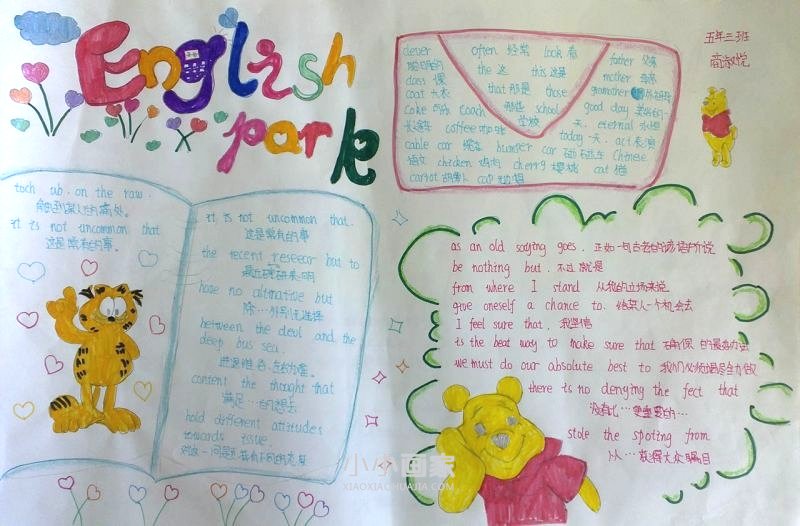 English
park
五年三班
clever often 经常 look 看 father 父亲
聪明的 the 这 this 这是 mother 母亲
class 课 that 那是 those gramother 外祖母
coat 大衣 那些 school good day 美好的一
coke 可乐 coach 学校 天. eternal 永恒
长途车 coffee 咖啡 today 一天. act 表演
cable car 缆车 bumper car 碰碰车 Chinese
语文 chicken 鸡肉 cherry 樱桃 cat 猫
carrot 胡萝卜 cap
toch ub. on the raw.
触到某人的痛处。
it is not uncommon that
这是常有的事。
it is not uncommon that.
这是常有的事
the recent reseear but to
最近研究表明
have no altrnative but
除…外别无选择
between the devil and the
deep bus sea.
进退维谷.
content the thought that
满足…的想法
hold different attitudes
towards issue.
对这一问题 有不同的态度
as an old saying goes. 正如一句古老的谚语所说
be nothing but. 不过就是
from where I stand 从我的立场来说
give oneself a chance to. 给某人一个机会去
I feel sure that. 我坚信
is the beat way to make sure that 确保 的最好办法
we must do our absolute best to 我们必须竭尽全力做
there is no denying the fect that
没有比…更重要的…
stole the spoting from
从…获得大众瞩目
小小画家
XIAOXIAOHUAJIA.COM